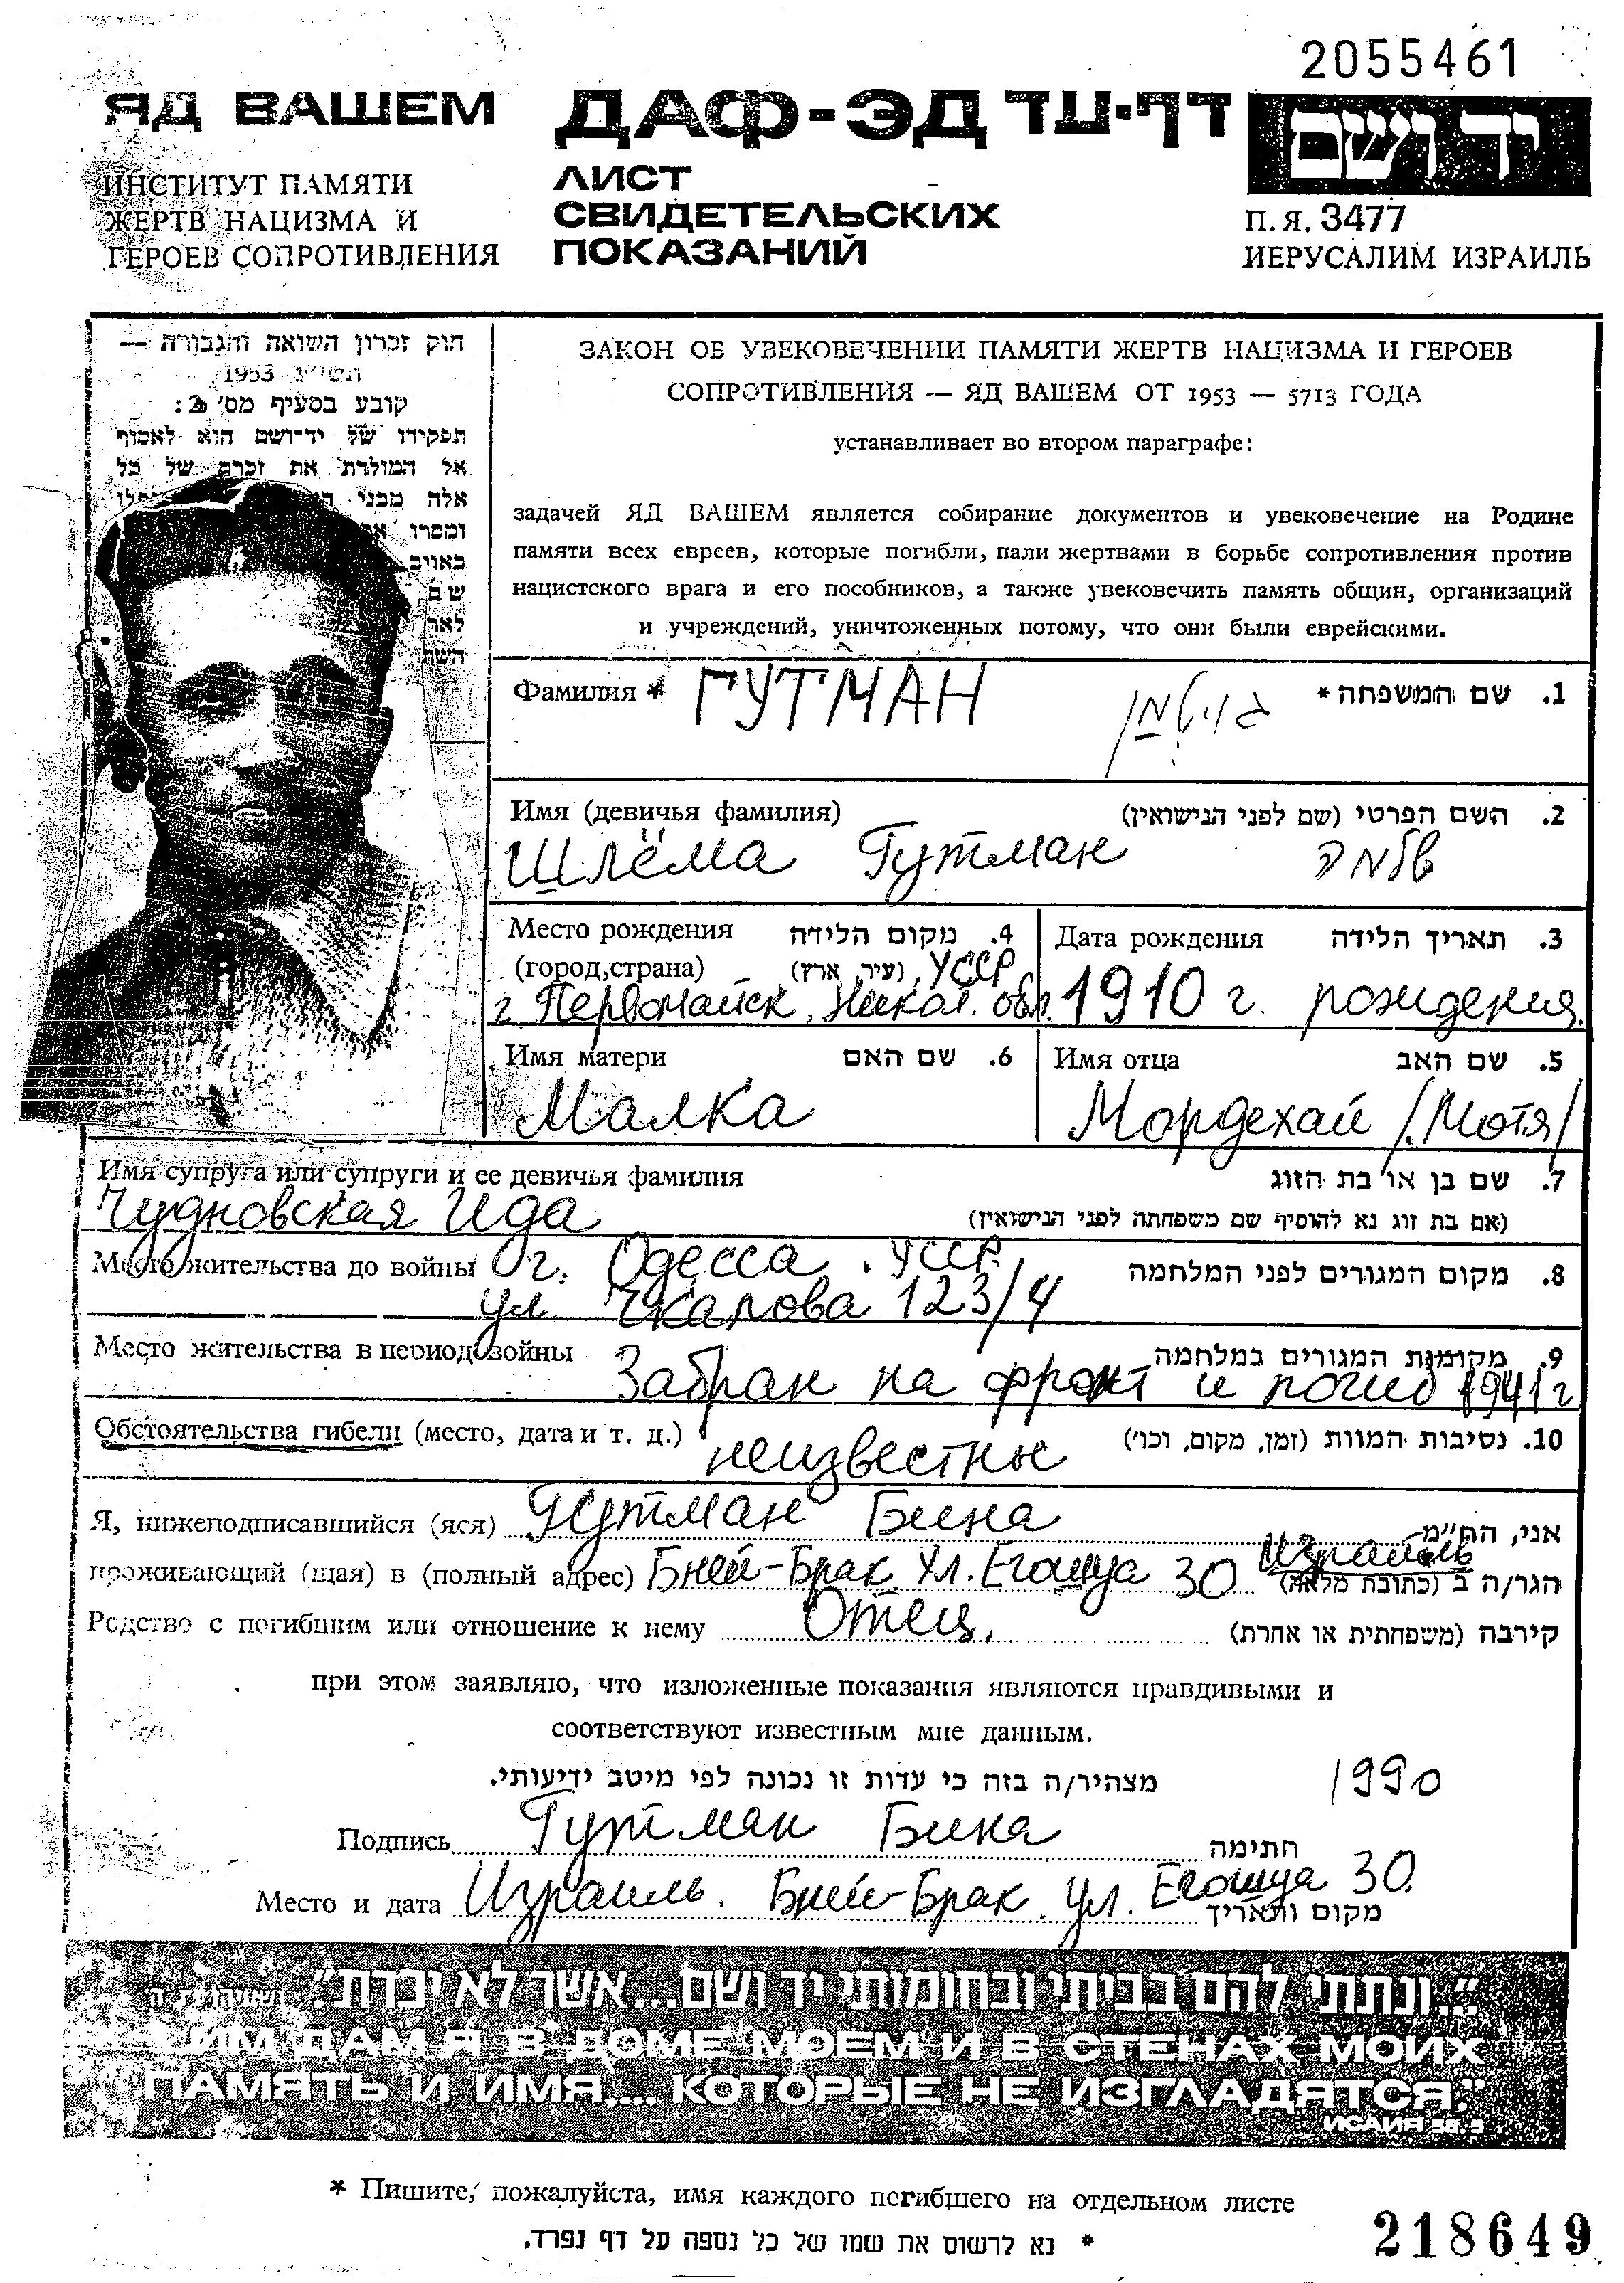 2055461
ЯД ВАШЕМ
ДАФ-ЭД דף-עד
יד ושם
ИНСТИТУТ ПАМЯТИ
ЖЕРТВ НАЦИЗМА И
ГЕРОЕВ СОПРОТИВЛЕНИЯ
ЛИСТ
СВИДЕТЕЛЬСКИХ
ПОКАЗАНИЙ
П.Я. 3477
ИЕРУСАЛИМ ИЗРАИЛЬ
חוק זכרון השואה והגבורה —
1953
קובע בסעיף מס' 2:
תפקידו של יד-ושם הוא לאסוף
אל המולדת את זכרם של כל
אלה מבני
ומסרו
ЗАКОН ОБ УВЕКОВЕЧЕНИИ ПАМЯТИ ЖЕРТВ НАЦИЗМА И ГЕРОЕВ
СОПРОТИВЛЕНИЯ — ЯД ВАШЕМ ОТ 1953 — 5713 ГОДА
устанавливает во втором параграфе:
задачей ЯД ВАШЕМ является собирание документов и увековечение на Родине
памяти всех евреев, которые погибли, пали жертвами в борьбе сопротивления против
нацистского врага и его пособников, а также увековечить память общин, организаций
и учреждений, уничтоженных потому, что они были еврейскими.
Фамилия * ГУТМАН גוטמן 1. שם המשפחה *
Имя (девичья фамилия) 2. השם הפרטי (שם לפני הנישואין)
Шлёма Гутман שלמה
Место рождения 4. מקום הלידה
(город,страна) (עיר, ארץ) УССР
г. Первомайск, Никол. обл.
Дата рождения 3. תאריך הלידה
1910 г. рождения.
Имя матери 6. שם האם
Малка
Имя отца 5. שם האב
Мордехай /Мотя/
Имя супруга или супруги и ее девичья фамилия 7. שם בן או בת הזוג
Чудновская Ида (אם בת זוג נא להוסיף שם משפחתה לפני הנישואין)
Место жительства до войны г. Одесса. УССР, 8. מקום המגורים לפני המלחמה
ул Чкалова 123/4
Место жительства в период войны 9. מקומות המגורים במלחמה
Забран на фронт и погиб 1941 г
Обстоятельства гибели (место, дата и т. д.) неизвестны 10. נסיבות המוות (זמן, מקום, וכו')
Я, нижеподписавшийся (яся) Гутман Бина אני, הח"מ
проживающий (щая) в (полный адрес) Бней-Брак Ул. Егошуа 30 Израиль הגר/ה ב (כתובת מלאה)
Родство с погибшим или отношение к нему Отец. קירבה (משפחתית או אחרת)
при этом заявляю, что изложенные показания являются правдивыми и
соответствуют известным мне данным.
מצהיר/ה בזה כי עדות זו נכונה לפי מיטב ידיעותי. 1990
Подпись Гутман Бина חתימה
Место и дата Израиль. Бней-Брак. ул. Егошуа 30. מקום ותאריך
"...ונתתי להם בביתי ובחומותי יד ושם...אשר לא יכרת".
ИМ ДАМ Я В ДОМЕ МОЕМ И В СТЕНАХ МОИХ
ПАМЯТЬ И ИМЯ,... КОТОРЫЕ НЕ ИЗГЛАДЯТСЯ."
ИСАИЯ
* Пишите, пожалуйста, имя каждого погибшего на отдельном листе
* נא לרשום את שמו של כל נספה על דף נפרד.
218649